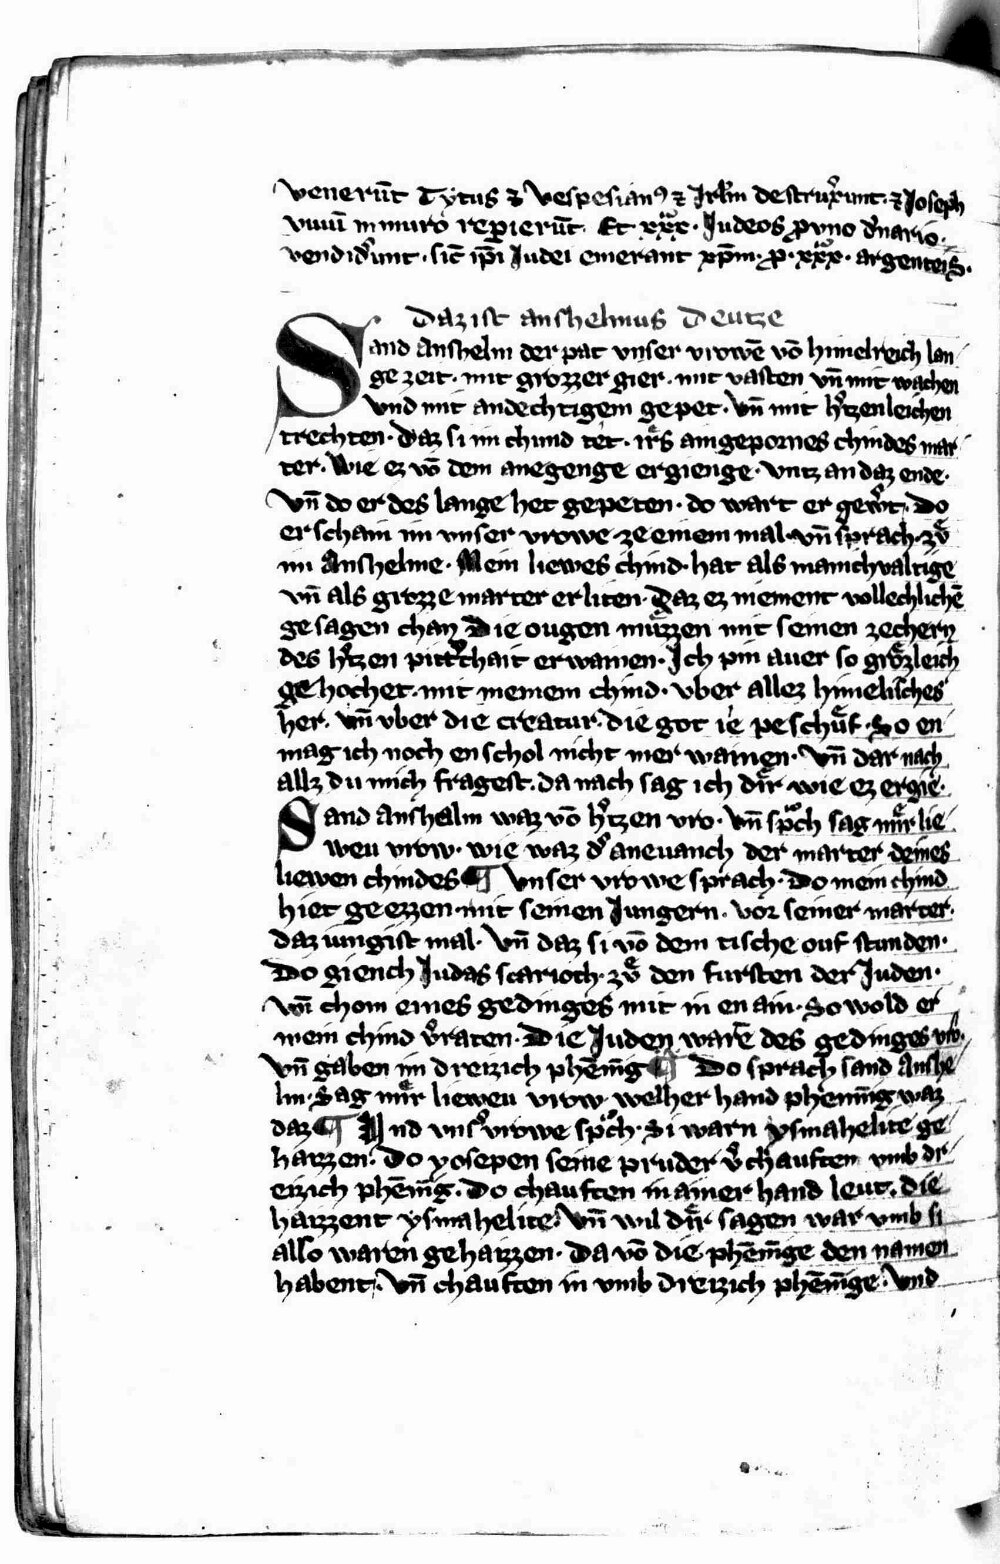 venerūt Tytus ⁊ Vespesian⁹ ⁊ Jrl̄m destruxͬunt · ⁊ Joseph
viuū in muro repierūt · Et xxx · Judeos p vno dͬnario ·
vendidͬunt · sic̄ ip̄i Judei emerant xp̄m · p · xxx · argenteis ·
Daz ist anshelmus Deutze
Sand Anshelm der pat vnser vrowē vō himelreich lan
ge zeit · mit grozzer gier · mit vasten vn̄ mit wachen
vnd mit andechtigem gepet · Vn̄ mit hͬtzenleichen
trechten · Daz si im chund tet · irͤs aingepornes chindes mar
ter · Wie ez vō dem anegenge ergienge · Vntz an daz ende ·
Vn̄ do er des lange het gepeten · do wart er gewͬt · Do
erschain im vnser vrowe · ze einem mal · vn̄ sprach · zvͤ
im Anshelme · Mein liewes chind · hat als manichvaltige
vn̄ als grozze marter erliten · Daz ez niement vollechlichē
gesagen chan Die ougen muͤzzen mit seinen zechern
des hͬtzen pittͬchait erwainen · Ich pin auer so groͤzleich
gehochet · mit meinem chind · vber allez himelisches
her · vn̄ vber die creatur · die got ie peschuͤf · So en
mag ich noch en schol nicht mer wainen · Vn̄ dar nach
allz du mich fragest · da nach sag ich dir · wie ez ergie ·
Sand Anshalm waz vō hͬtzen vro · Vn̄ spͦch sag mir lie
weu vrow · wie waz dͬ aneuanch der marter deines
liewen chindes ¶ Vnser vrowe sprach · Do mein chind
hiet geezzen · mit seinen Jungern · vor seiner marter ·
daz iungist mal · Vn̄ daz si vō dem tische ouf stunden ·
Do giench Judas scarioth · zvͤ den fursten der Juden ·
Vn̄ chom eines gedinges mit in en ain · So wold er
mein chind vͬraten · Die Juden warē des gedinges vro ·
Vn̄ gaben im dreizich phēnīg ¶ Do sprach sand Anshe
lm · Sag mir lieweu vrow · welher hand phēnīg waz
daz ¶ And vnsͬ vrowe spͦch · Si warn ysmahelite ge
haizzen · Do yosepen seine pruder vͬchauften vmb dr
eizich phēnīg · Do chauften in ainer hand leut · die
haizzent ysmahelite · Vn̄ wil dir sagen war vmb si
also waren gehaizzen · Da vō die phēnīge den namen
habent · Vn̄ chauften in vmb dreizich phēnīge · Vnd